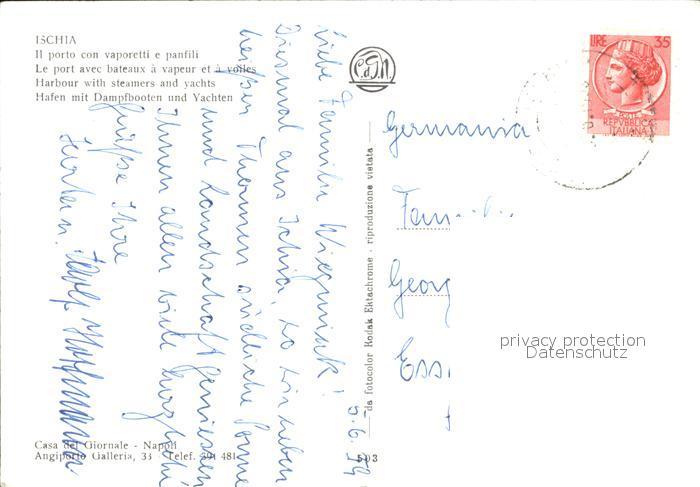 ISCHIA
Il porto con vaporetti e panfili
Le port avec bateaux à vapeur et à voiles
Harbour with steamers and yachts
Hafen mit Dampfbooten und Yachten
LIRE 35
POSTE
REPVBBLICA
ITALIANA
Germania
Fam
Georg
Ess
privacy protection
Datenschutz
5.6.59
Liebe Familie
Diesmal aus Ischia, wo wir neben
heißen Thermen südliche Sonne
und Landschaft genießen
Ihnen allen viele herzliche
Grüße Ihre
u.
da fotocolor Kodak Ektachrome - riproduzione vietata
Casa del Giornale - Napoli
Angiporto Galleria, 33 - Telef. 391 481
503